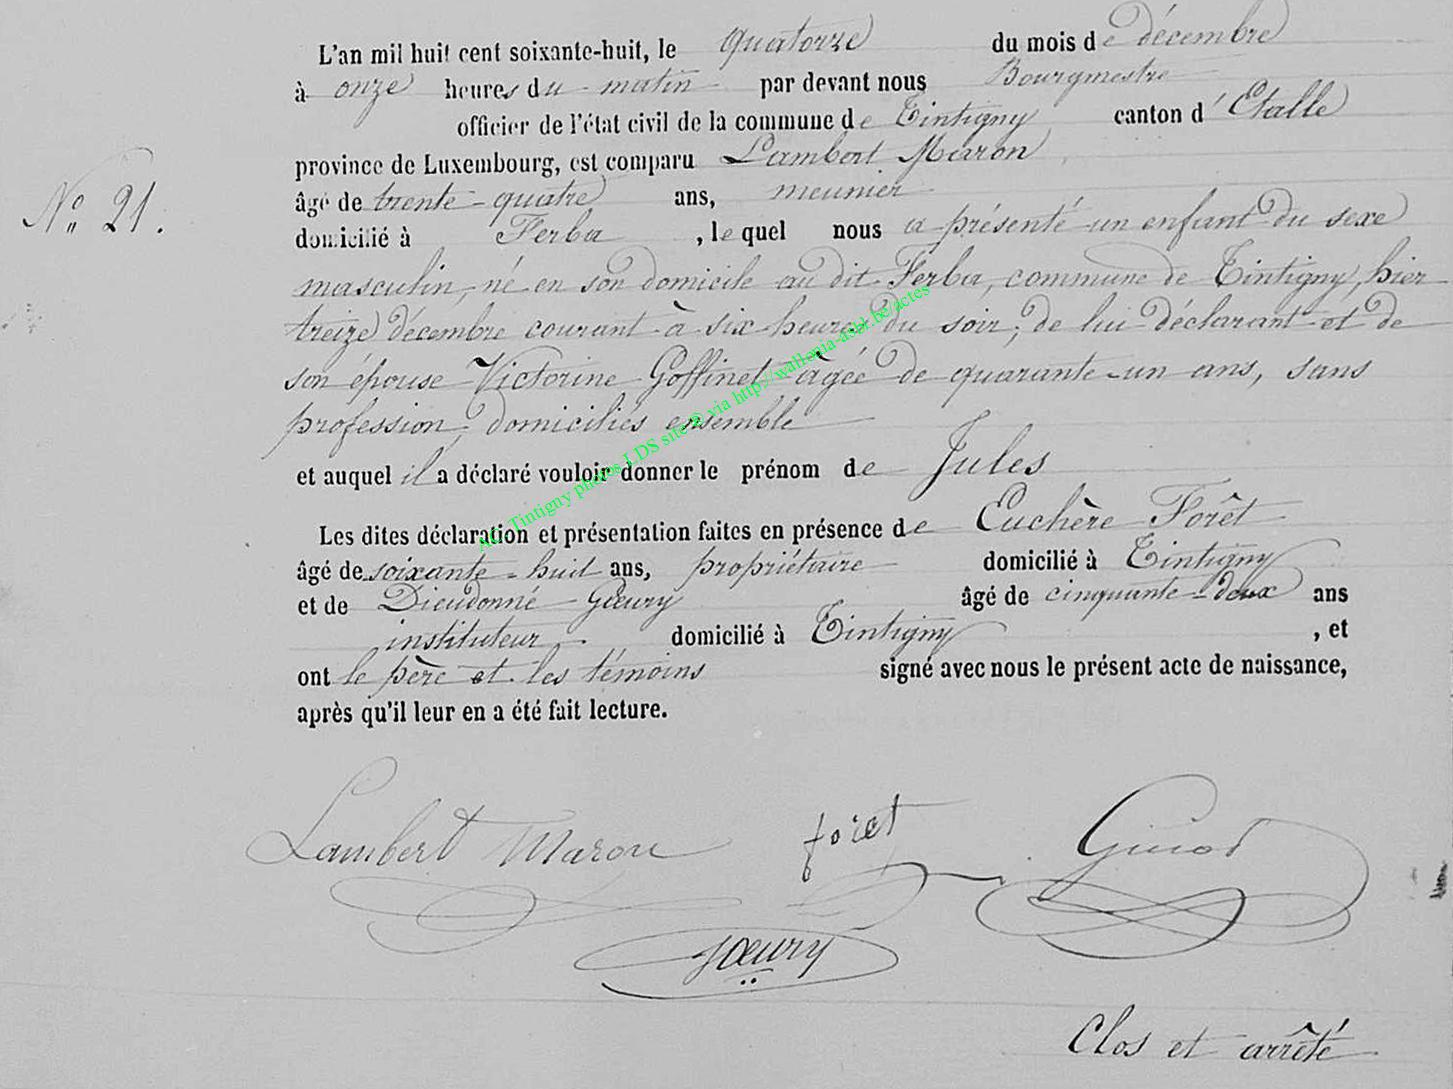 L'an mil huit cent soixante-huit, le quatorze du mois de décembre
à onze heures du matin par devant nous Bourgmestre
officier de l'état civil de la commune de Tintigny canton d'Etalle
province de Luxembourg, est comparu Lambert Maron
N° 21.
âgé de trente-quatre ans, meunier
domicilié à Ferba, lequel nous a présenté un enfant du sexe
masculin, né en son domicile au dit Ferba, commune de Tintigny, hier
treize décembre courant à six heures du soir, de lui déclarant et de
son épouse Victorine Goffinet âgée de quarante-un ans, sans
profession, domiciliés ensemble
et auquel il a déclaré vouloir donner le prénom de Jules
Les dites déclaration et présentation faites en présence de Euchère Forêt
âgé de soixante-huit ans, propriétaire domicilié à Tintigny
et de Dieudonné Goeury âgé de cinquante-deux ans
instituteur domicilié à Tintigny, et
ont le père et les témoins signé avec nous le présent acte de naissance,
après qu'il leur en a été fait lecture.
Lambert Maron foret
Goeury
Clos et arrêté
AC Tintigny photos LDS site © via http://wallonia-asbl.be/actes